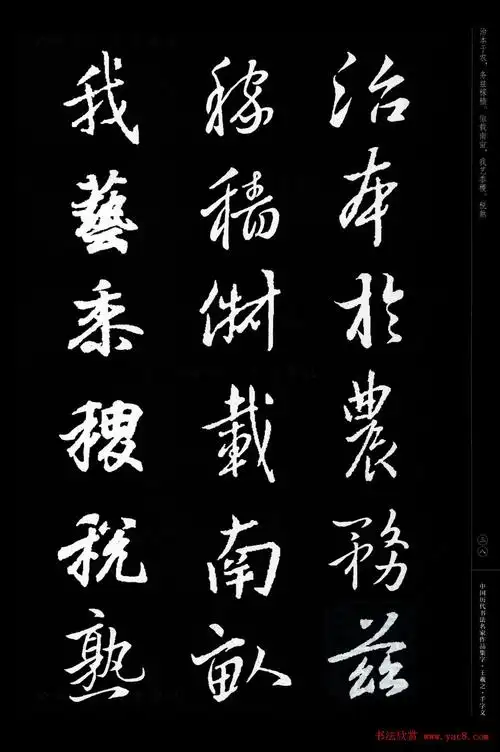 治本于农，务兹稼穑。俶载南亩，我艺黍稷。税熟
三八
中国历代书法名家作品集字·王羲之·千字文
治本於農務茲
稼穡俶載南畝
我藝黍稷稅熟
书法欣赏 www.yac8.com